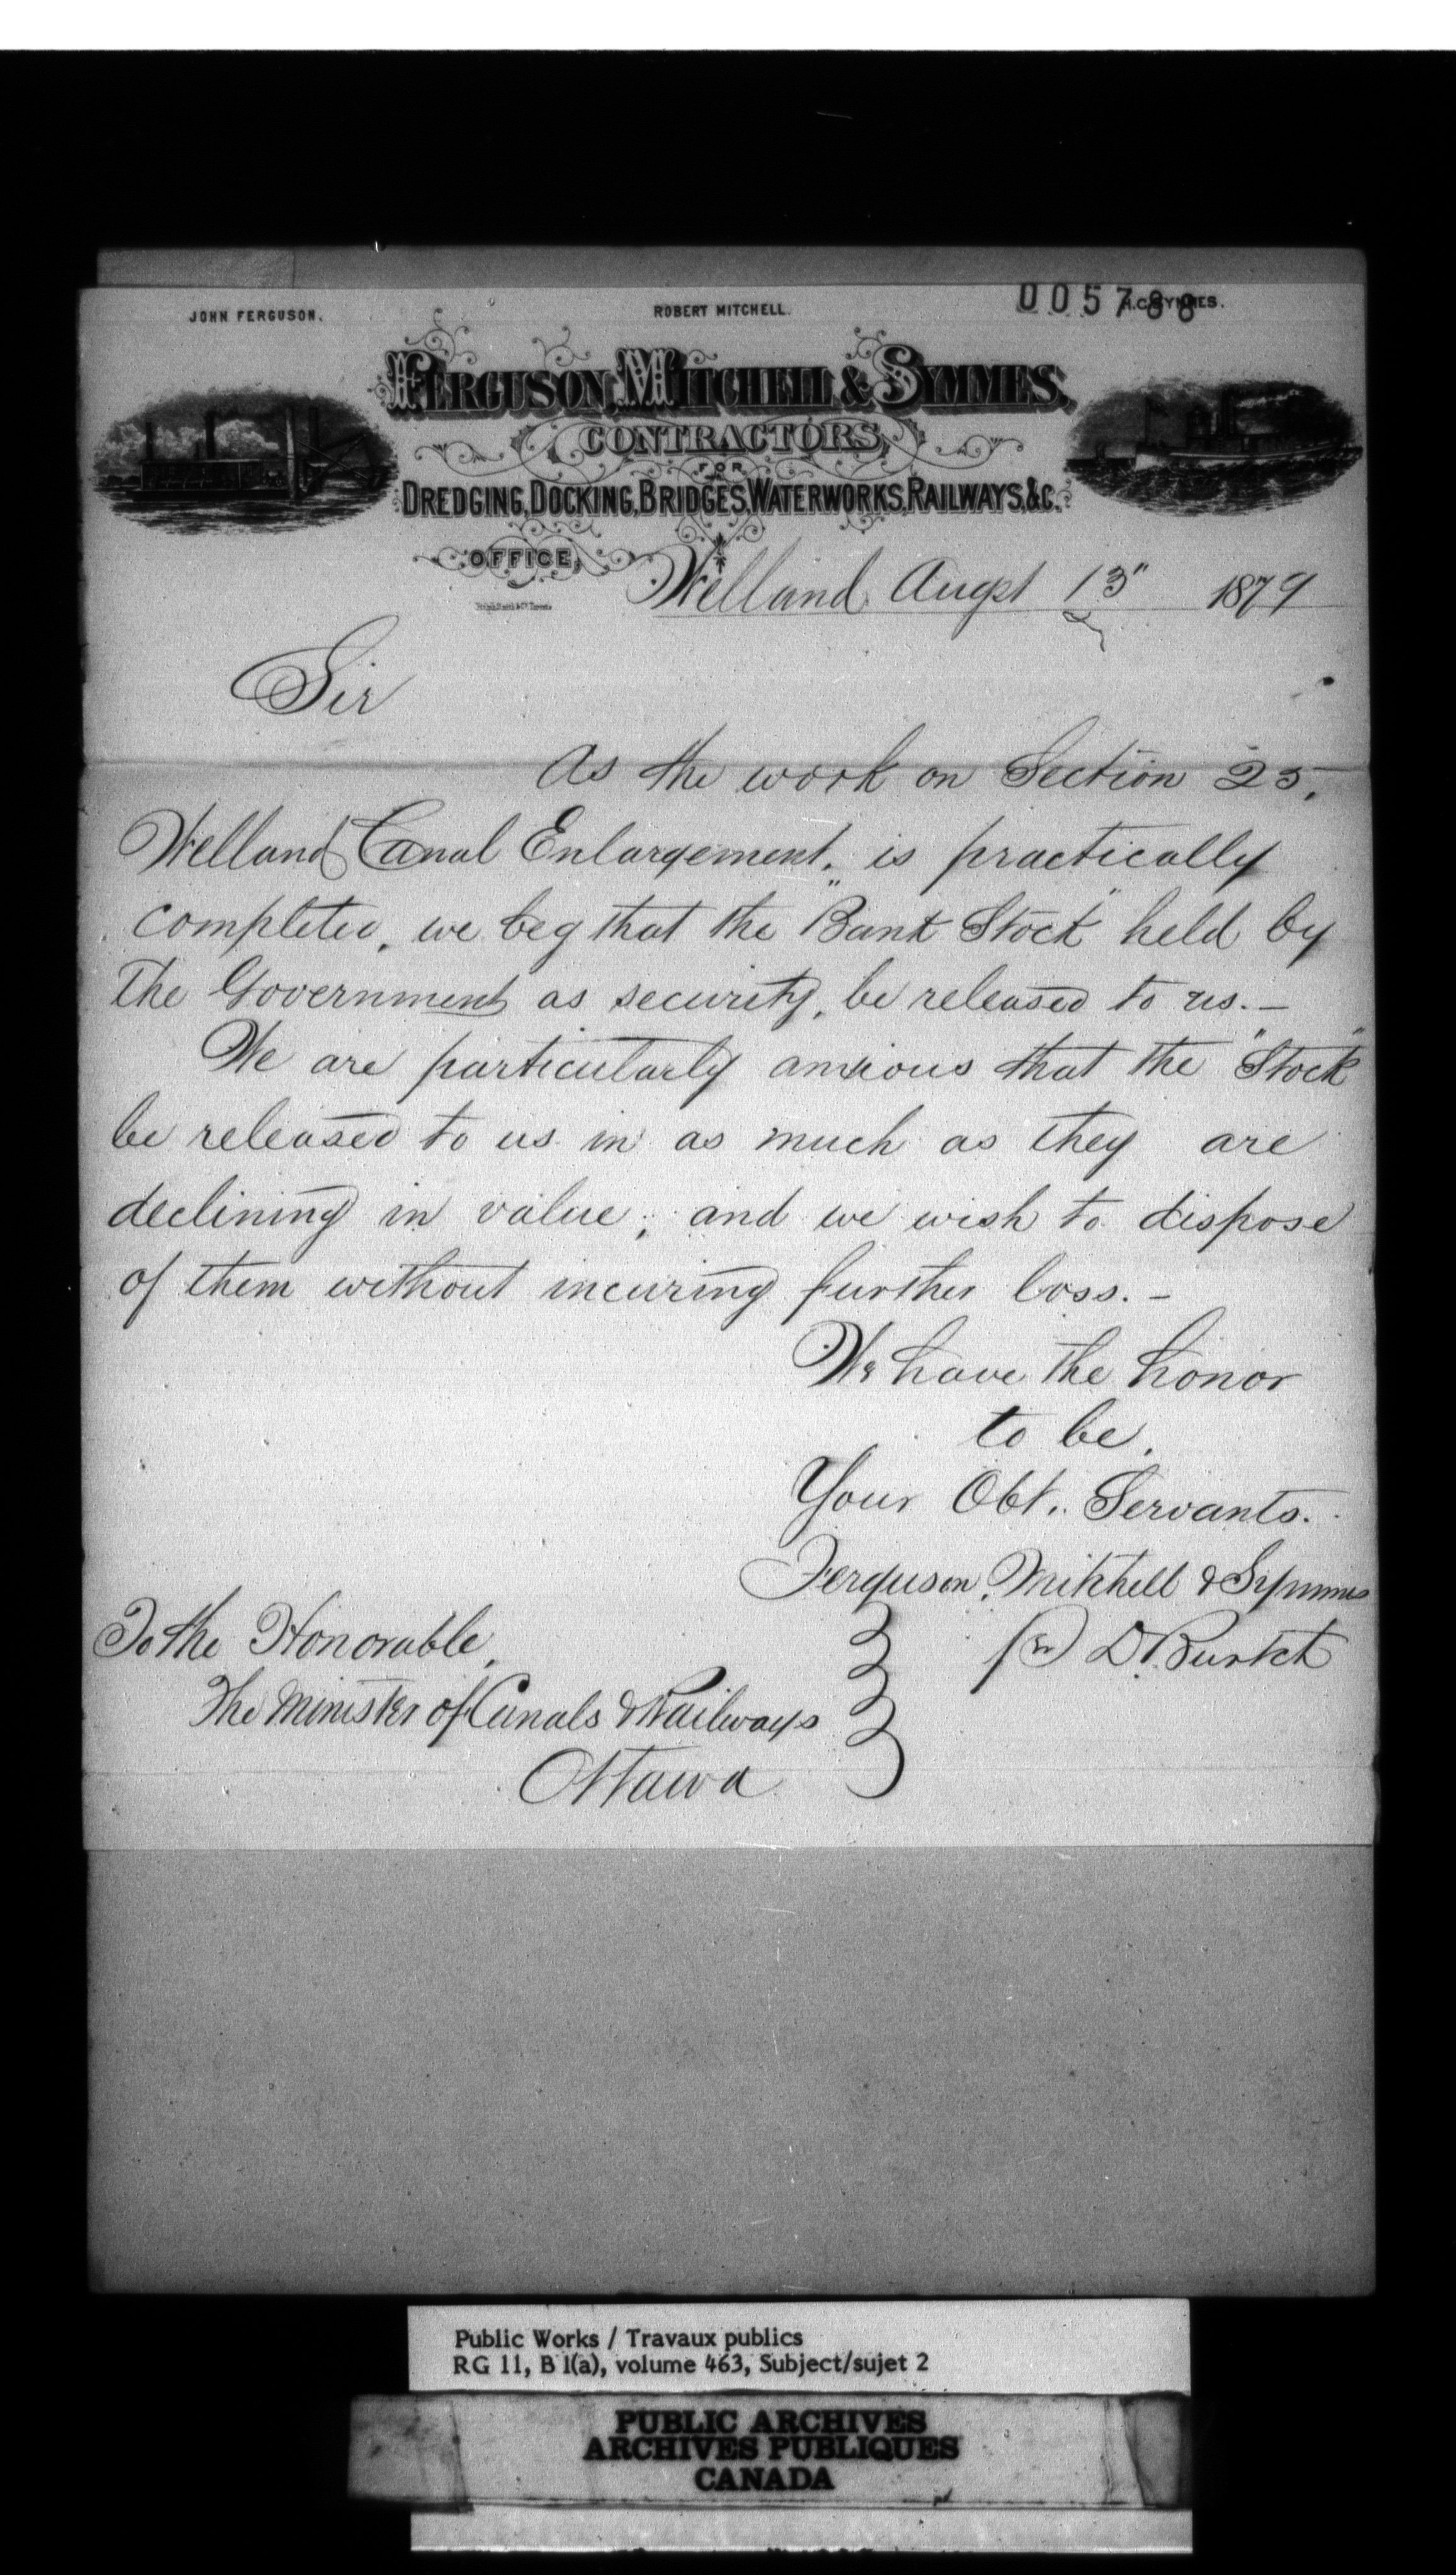 005788
JOHN FERGUSON. ROBERT MITCHELL. H.C. SYMMES.
FERGUSON, MITCHELL & SYMMES,
CONTRACTORS,
FOR
DREDGING, DOCKING, BRIDGES, WATERWORKS, RAILWAYS, &C.
OFFICE,
Welland Augst 13" 1879
Sir
As the work on Section 25,
Welland Canal Enlargement, is practically
completed, we beg that the "Bank Stock" held by
the Government as security, be released to us. –
We are particularly anxious that the "Stock"
be released to us in as much as they are
declining in value, and we wish to dispose
of them without incuring further loss. –
We have the honor
to be,
Your Obt. Servants.
Ferguson, Mitchell & Symmes
pr D.
To the Honorable,
The Minister of Canals & Railways
Ottawa
Public Works / Travaux publics
RG 11, B 1(a), volume 463, Subject/sujet 2
PUBLIC ARCHIVES
ARCHIVES PUBLIQUES
CANADA